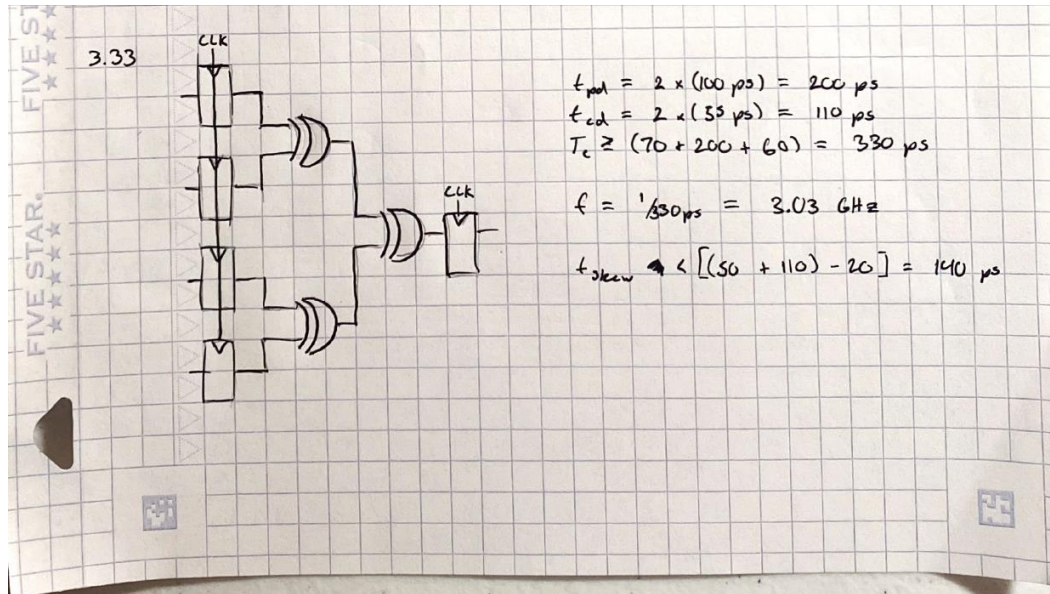 FIVE ST
FIVE STAR.
3.33
CLK
CLK
t_pd = 2 x (100 ps) = 200 ps
t_cd = 2 x (55 ps) = 110 ps
T_c ≥ (70 + 200 + 60) = 330 ps
f = 1/330ps = 3.03 GHz
t_skew < [(50 + 110) - 20] = 140 ps